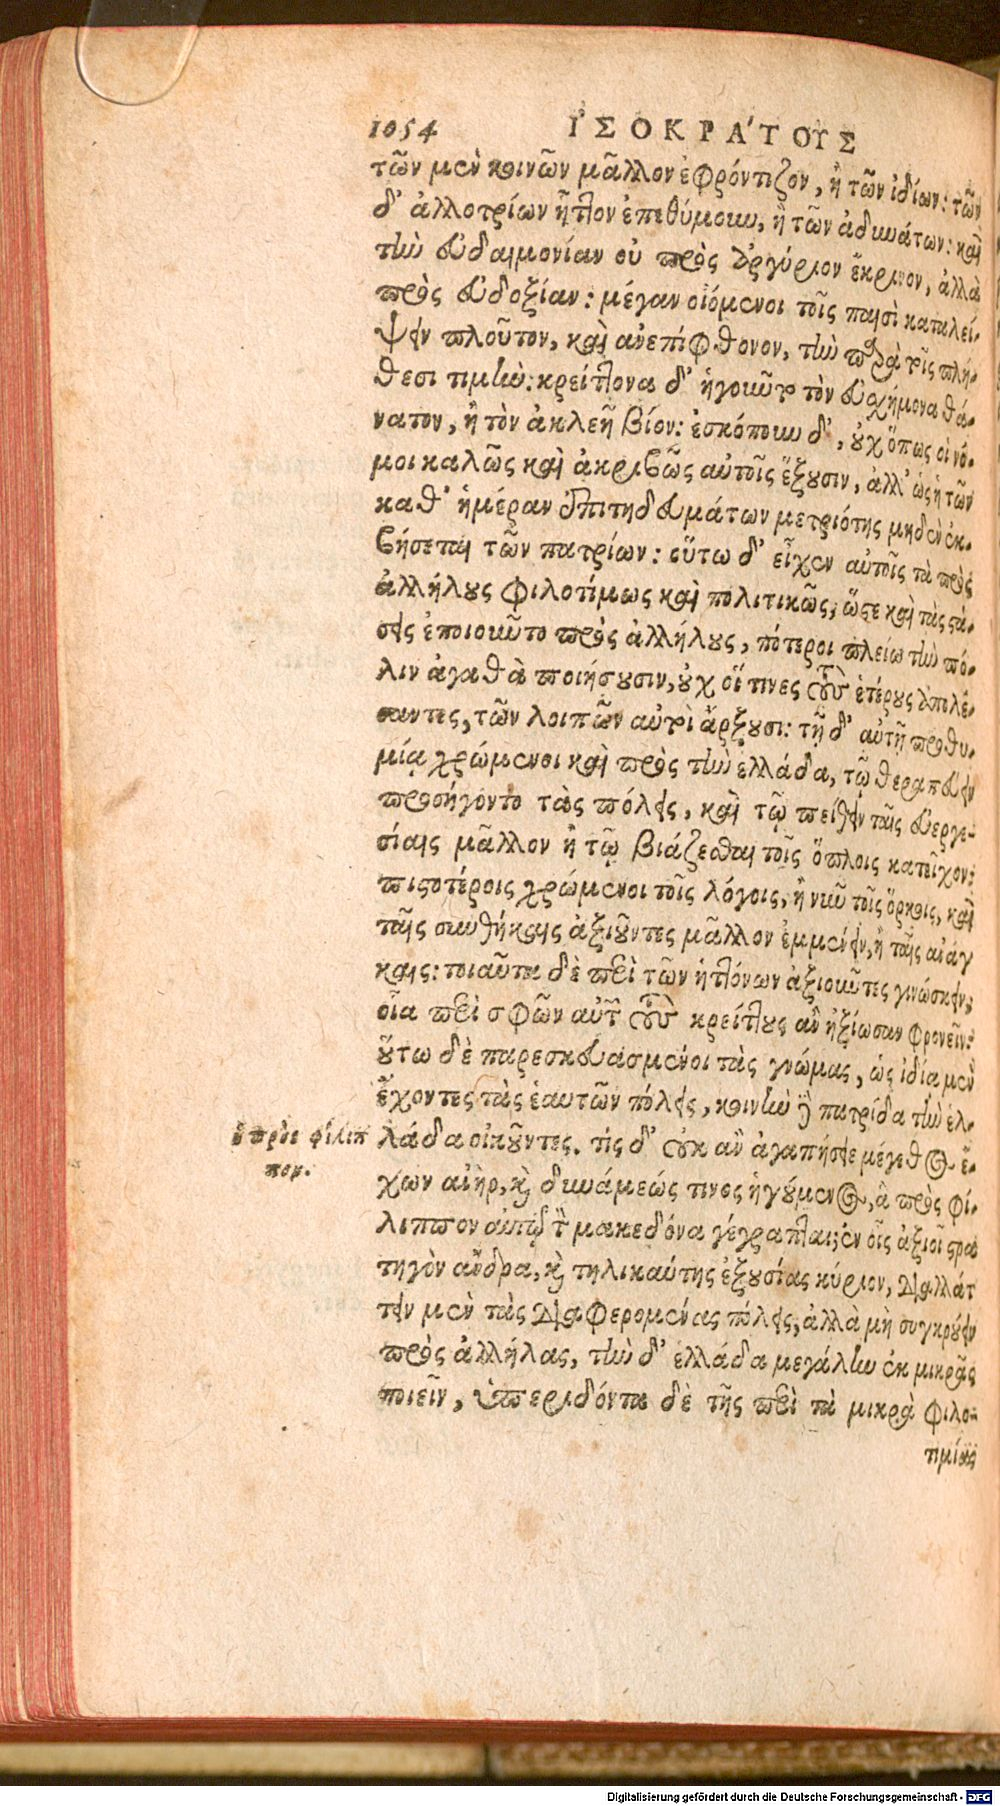 1054 ἸΣΟΚΡΆΤΟΥΣ
τῶν μὲν κοινῶν μᾶλλον ἐφρόντιζον, ἢ τῶν ἰδίων: τῶν
δ' ἀλλοτρίων ἧττον ἐπεθύμουν, ἢ τῶν ἀδυνάτων: καὶ
τὴν εὐδαιμονίαν οὐ πρὸς ἀργύριον ἔκρινον, ἀλλὰ
πρὸς εὐδοξίαν: μέγαν οἰόμενοι τοῖς παισὶ καταλεί-
ψειν πλοῦτον, καὶ ἀνεπίφθονον, τὴν παρὰ τοῖς πλή-
θεσι τιμήν: κρείττονα δ' ἡγοῦντο τὸν εὐσχήμονα θά-
νατον, ἢ τὸν ἀκλεῆ βίον: ἐσκόπουν δ', οὐχ ὅπως οἱ νό-
μοι καλῶς καὶ ἀκριβῶς αὐτοῖς ἕξουσιν, ἀλλ' ὡς ἡ τῶν
καθ' ἡμέραν ἐπιτηδευμάτων μετριότης μηδὲν ἐκ-
βήσεται τῶν πατρίων: οὕτω δ' εἶχεν αὐτοῖς τὰ πρὸς
ἀλλήλους φιλοτίμως καὶ πολιτικῶς, ὥστε καὶ τὰς στά-
σεις ἐποιοῦντο πρὸς ἀλλήλους, πότεροι πλείω τὴν πό-
λιν ἀγαθὰ ποιήσουσιν, οὐχ οἵ τινες τοὺς ἑτέρους ἀπολέ-
σαντες, τῶν λοιπῶν αὐτοὶ ἄρξουσι: τῇ δ' αὐτῇ προθυ-
μίᾳ χρώμενοι καὶ πρὸς τὴν ἑλλάδα, τῷ θεραπεύειν
προσήγοντο τὰς πόλεις, καὶ τῷ πείθειν ταῖς εὐεργε-
σίαις μᾶλλον ἢ τῷ βιάζεσθαι τοῖς ὅπλοις κατεῖχον:
πιστοτέροις χρώμενοι τοῖς λόγοις, ἢ νῦν τοῖς ὅρκοις, καὶ
ταῖς συνθήκαις ἀξιοῦντες μᾶλλον ἐμμένειν, ἢ ταῖς ἀνάγ
καις: τοιαῦτα δὲ περὶ τῶν ἡττόνων ἀξιοῦντες γινώσκειν,
οἷα περὶ σφῶν αὐτῶν τοὺς κρείττους ἂν ἠξίωσαν φρονεῖν:
οὕτω δὲ παρεσκευασμένοι τὰς γνώμας, ὡς ἰδία μὲν
ἔχοντες τὰς ἑαυτῶν πόλεις, κοινὴν δὲ πατρίδα τὴν ἑλ-
ὁ πρὸς φίλιπ
πον.
λάδα οἰκοῦντες. τίς δ' οὐκ ἂν ἀγαπήσειε μέγεθος ἔ-
χων ἀνὴρ, καὶ δυνάμεώς τινος ἡγούμενος, ἃ πρὸς φί-
λιππον αὐτῷ τὸν μακεδόνα γέγραπται; ἐν οἷς ἀξιοῖ στρα
τηγὸν ἄνδρα, καὶ τηλικαύτης ἐξουσίας κύριον, διαλλάτ
τειν μὲν τὰς διαφερομένας πόλεις, ἀλλὰ μὴ συγκρούειν
πρὸς ἀλλήλας, τὴν δ' ἑλλάδα μεγάλην ἐκ μικρᾶς
ποιεῖν, ὑπεριδόντα δὲ τῆς περὶ τὰ μικρὰ φιλο-
τιμίας
Digitalisierung gefördert durch die Deutsche Forschungsgemeinschaft - DFG